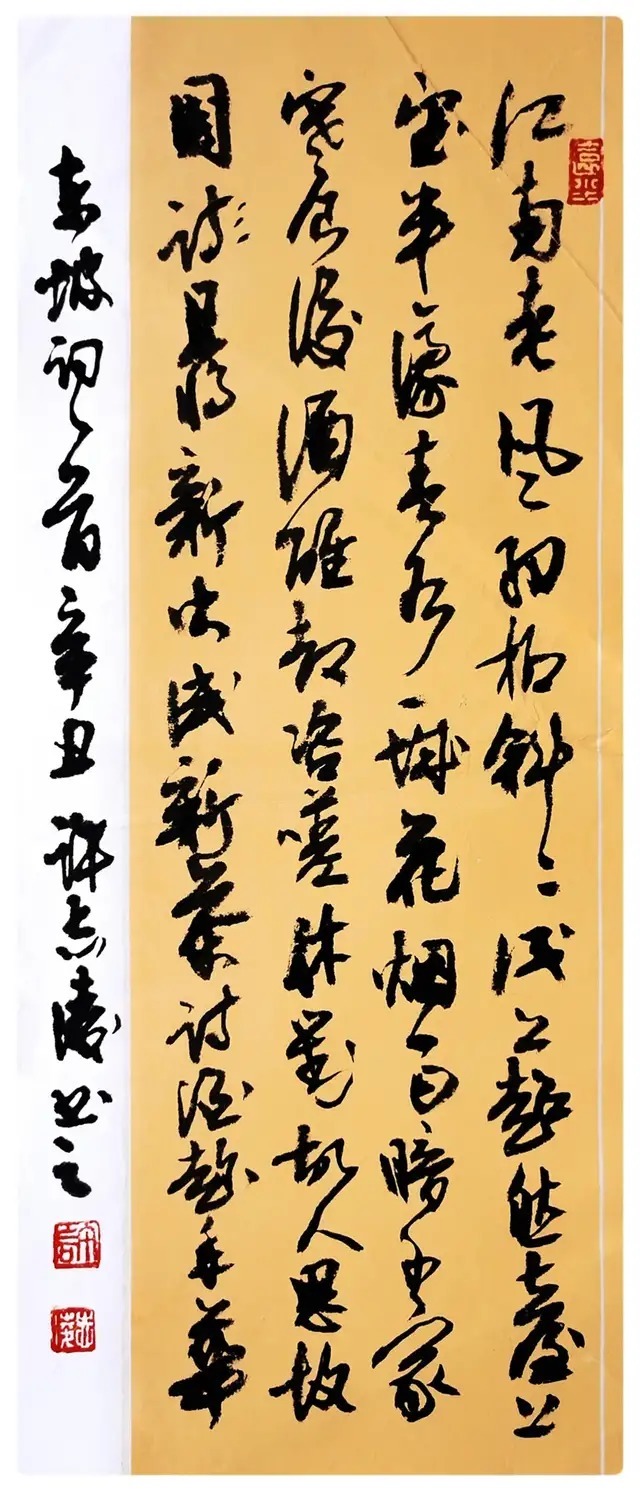 江南老风细柳斜斜试上超然台上
望半壕春水一城花烟雨暗千家
寒食后酒醒却咨嗟休對故人思故
國詩且将新火试新茶诗酒趁年華
东坡词一首辛丑许志凌书之